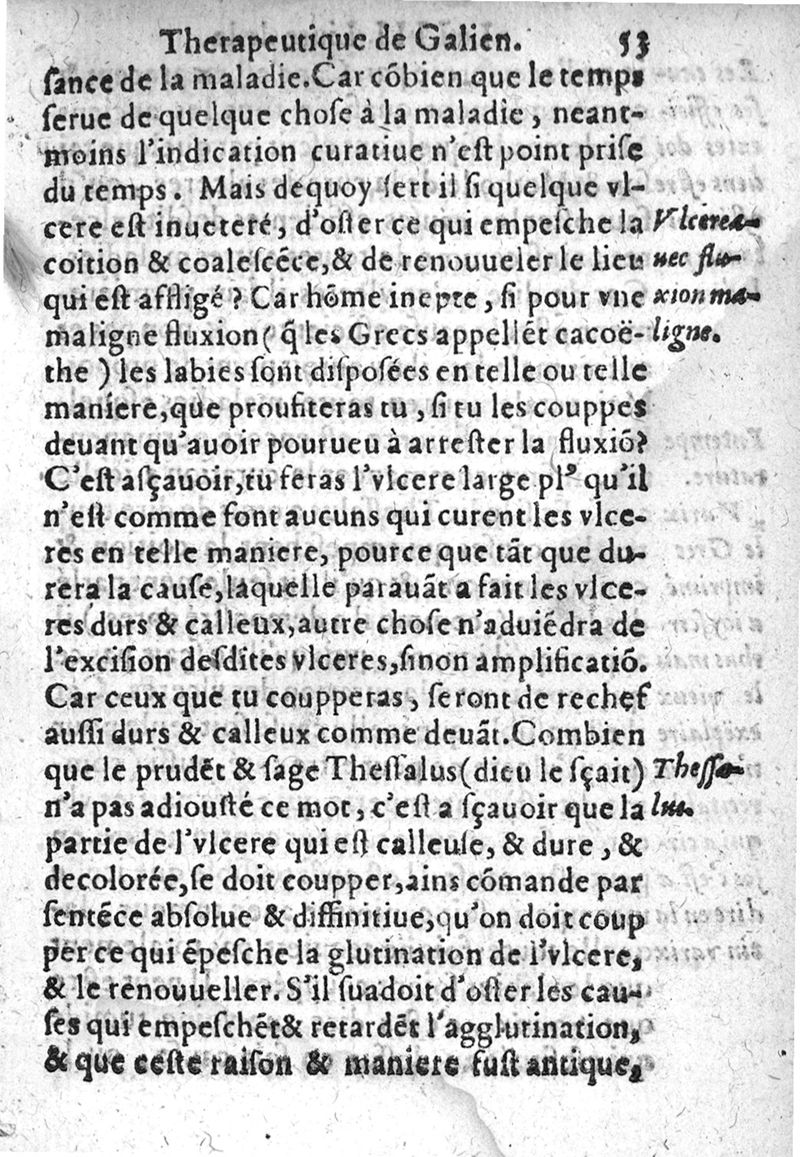 Therapeutique de Galien. 53
ſance de la maladie.Car cõbien que le temps
ſerue de quelque choſe à la maladie, neant-
moins l'indication curatiue n'eſt point priſe
du temps. Mais dequoy ſert il ſi quelque vl-
cere eſt inueteré, d'oſter ce qui empeſche la
coition & coaleſcẽce,& de renouueler le lieu
qui eſt affligé? Car hõme inepte, ſi pour vne
maligne fluxion( q̃ les Grecs appellẽt cacoë-
the ) les labies ſont diſpoſées en telle ou telle
maniere,que proufiteras tu, ſi tu les couppes
deuant qu'auoir pourueu à arreſter la fluxiõ?
C'eſt aſçauoir,tu feras l'vlcere large plꝰ qu'il
n'eſt comme font aucuns qui curent les vlce-
res en telle maniere, pource que tãt que du-
rera la cauſe,laquelle parauãt a fait les vlce-
res durs & calleux,autre choſe n'aduiẽdra de
l'exciſion deſdites vlceres,ſinon amplificatiõ.
Car ceux que tu coupperas, ſeront de rechef
auſſi durs & calleux comme deuãt.Combien
que le prudẽt & ſage Theſſalus(dieu le ſçait)
n'a pas adiouſté ce mot, c'eſt a ſçauoir que la
partie de l'vlcere qui eſt calleuſe, & dure, &
decolorée,ſe doit coupper,ains cõmande par
ſentẽce abſolue & diffinitiue,qu'on doit coup
per ce qui ẽpeſche la glutination de l'vlcere,
& le renouueller. S'il ſuadoit d'oſter les cau-
ſes qui empeſchẽt& retardẽt l'agglutination,
& que ceſte raiſon & maniere fuſt antique,
Vlcere a-
uec flu-
xion ma-
ligne.
Theſſa-
lus.